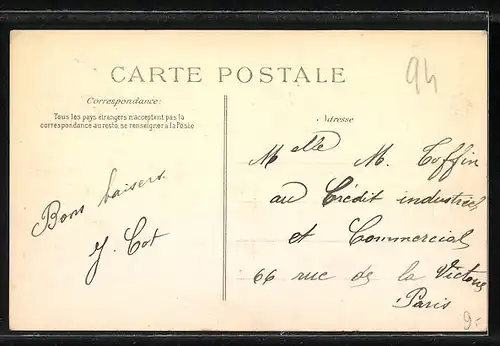 94
CARTE POSTALE
Correspondance:
Tous les pays étrangers n'acceptent pas la
correspondance au recto, se renseigner à la Poste
Bons baisers
Y. Cot
Adresse
Melle M. Coffin
au Crédit industriel
et Commercial
66 rue de la Victoire
Paris
9.-